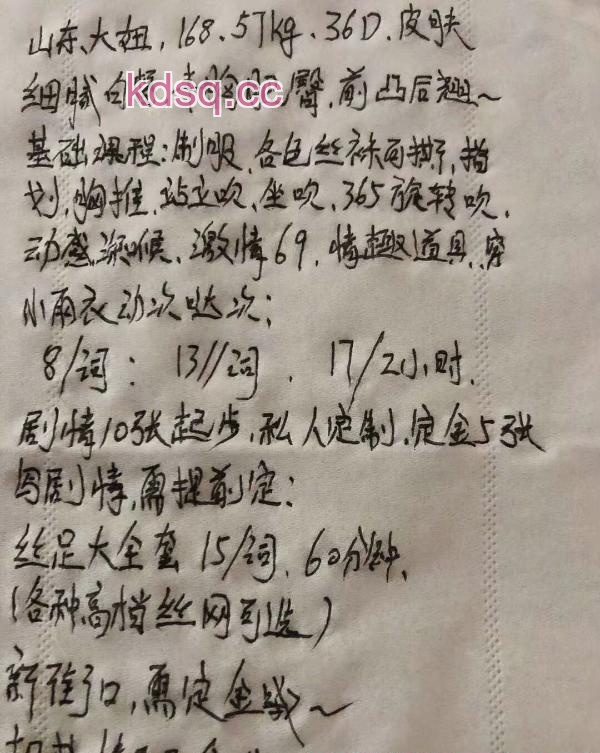 山东、大妞,168.57kg.36D.皮肤
细腻白 kdsq.cc 臀,前凸后翘~
基础课程:制服、各色丝袜可撕,指
划,胸推,站立吹、坐吹、365旋转吹、
动感深喉、激情69,情趣道具,穿
小雨衣动次哒次;
8/词:13//词、17/2小时.
剧情10张起步,私人定制,定金5张
写剧情,需提前定;
丝足大全套 15/词、60分钟、
(各种高档丝网可选)
新街口,需定金~